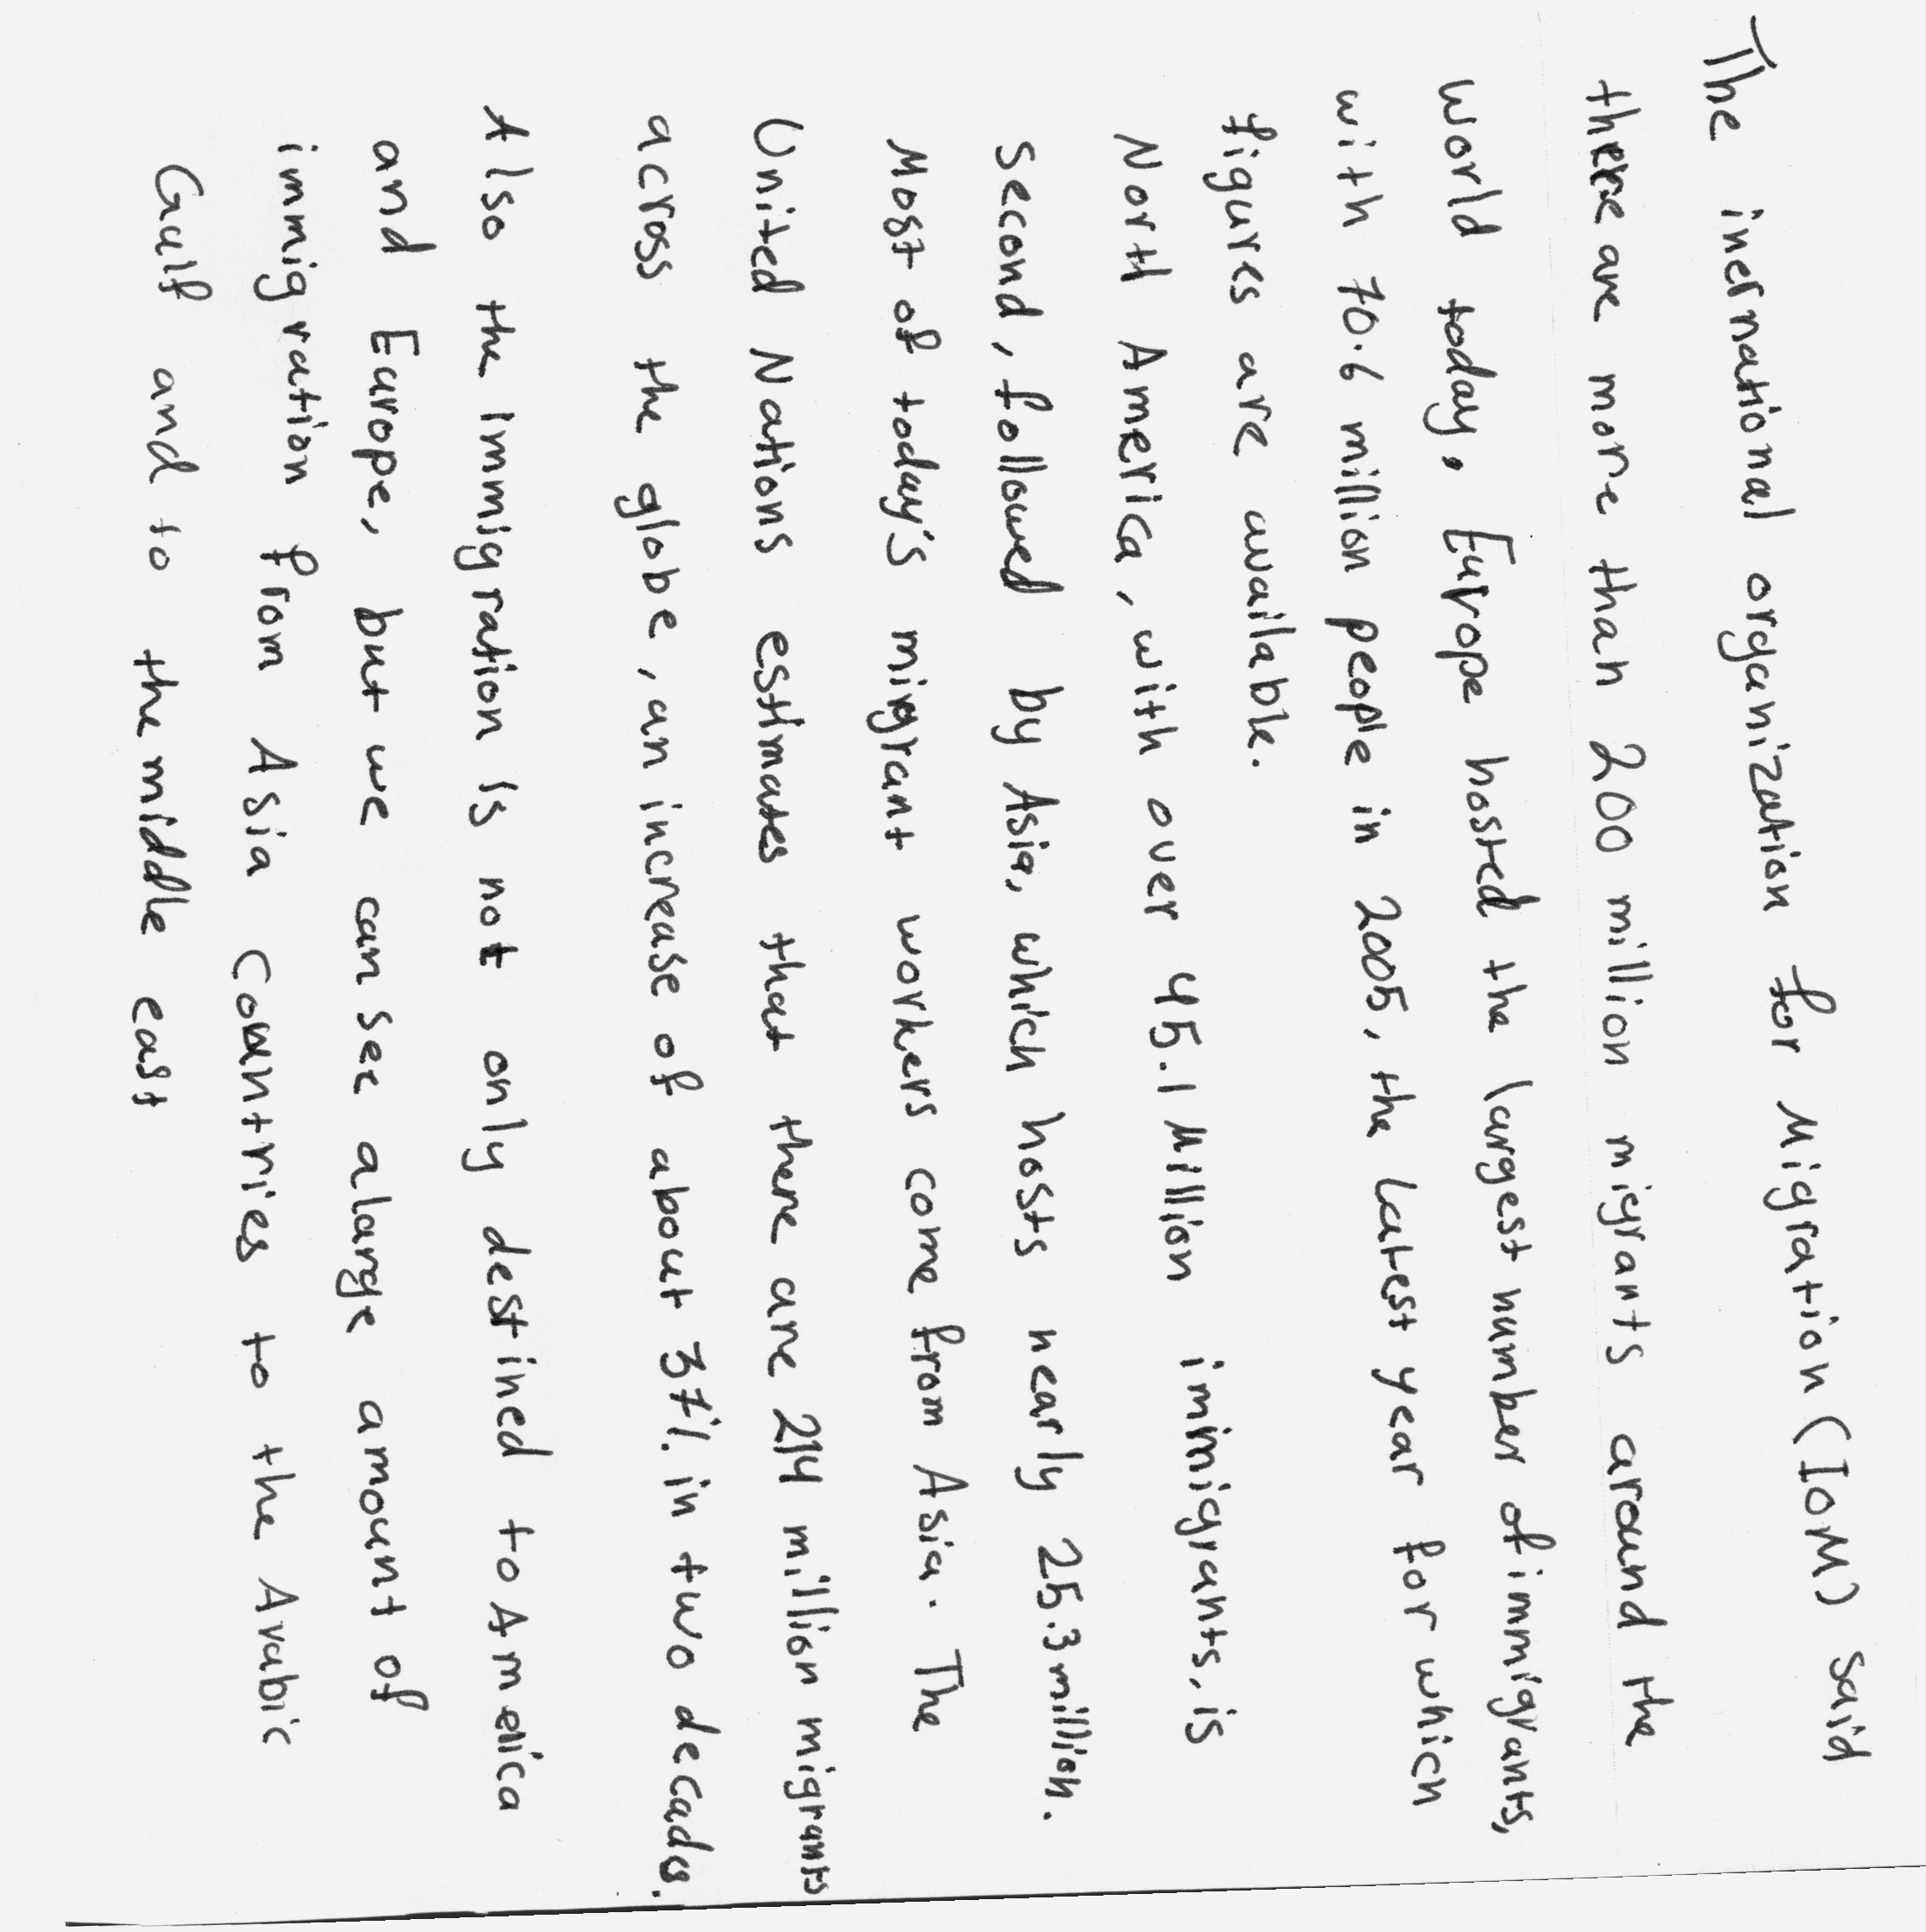 The inernational organization for Migration (IOM) said
there are more than 200 million migrants around the
world today. Europe hosted the largest number of immigrants,
with 70.6 million people in 2005, the Latest year for which
figures are available.
North America, with over 45.1 Million immigrants, is
second, followed by Asia, which hosts nearly 25.3 million.
Most of today's migrant workers come from Asia. The
United Nations estimates that there are 214 million migrants
across the globe, an increase of about 37% in two decades.
Also the immigration is not only destined to America
and Europe, but we can see a large amount of
immigration from Asia Countries to the Arabic
Gulf and to the middle east